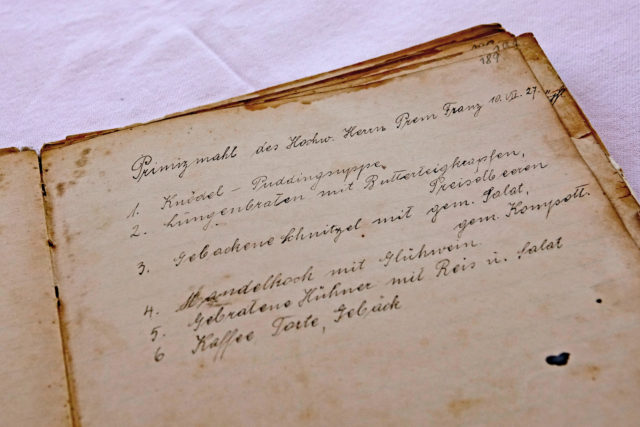 187
Primizmahl des Hochw. Herrn Prem Franz 10. VII. 27.
1. Knödel – Puddingsuppe,
2. Lungenbraten mit Butterteigkrapfen,
Preiselbeeren
3. Gebackene Schnitzel mit gem. Salat,
gem. Kompott.
4. Mandelkoch mit Glühwein
5. Gebratene Hühner mit Reis u. Salat
6 Kaffee, Torte, Gebäck